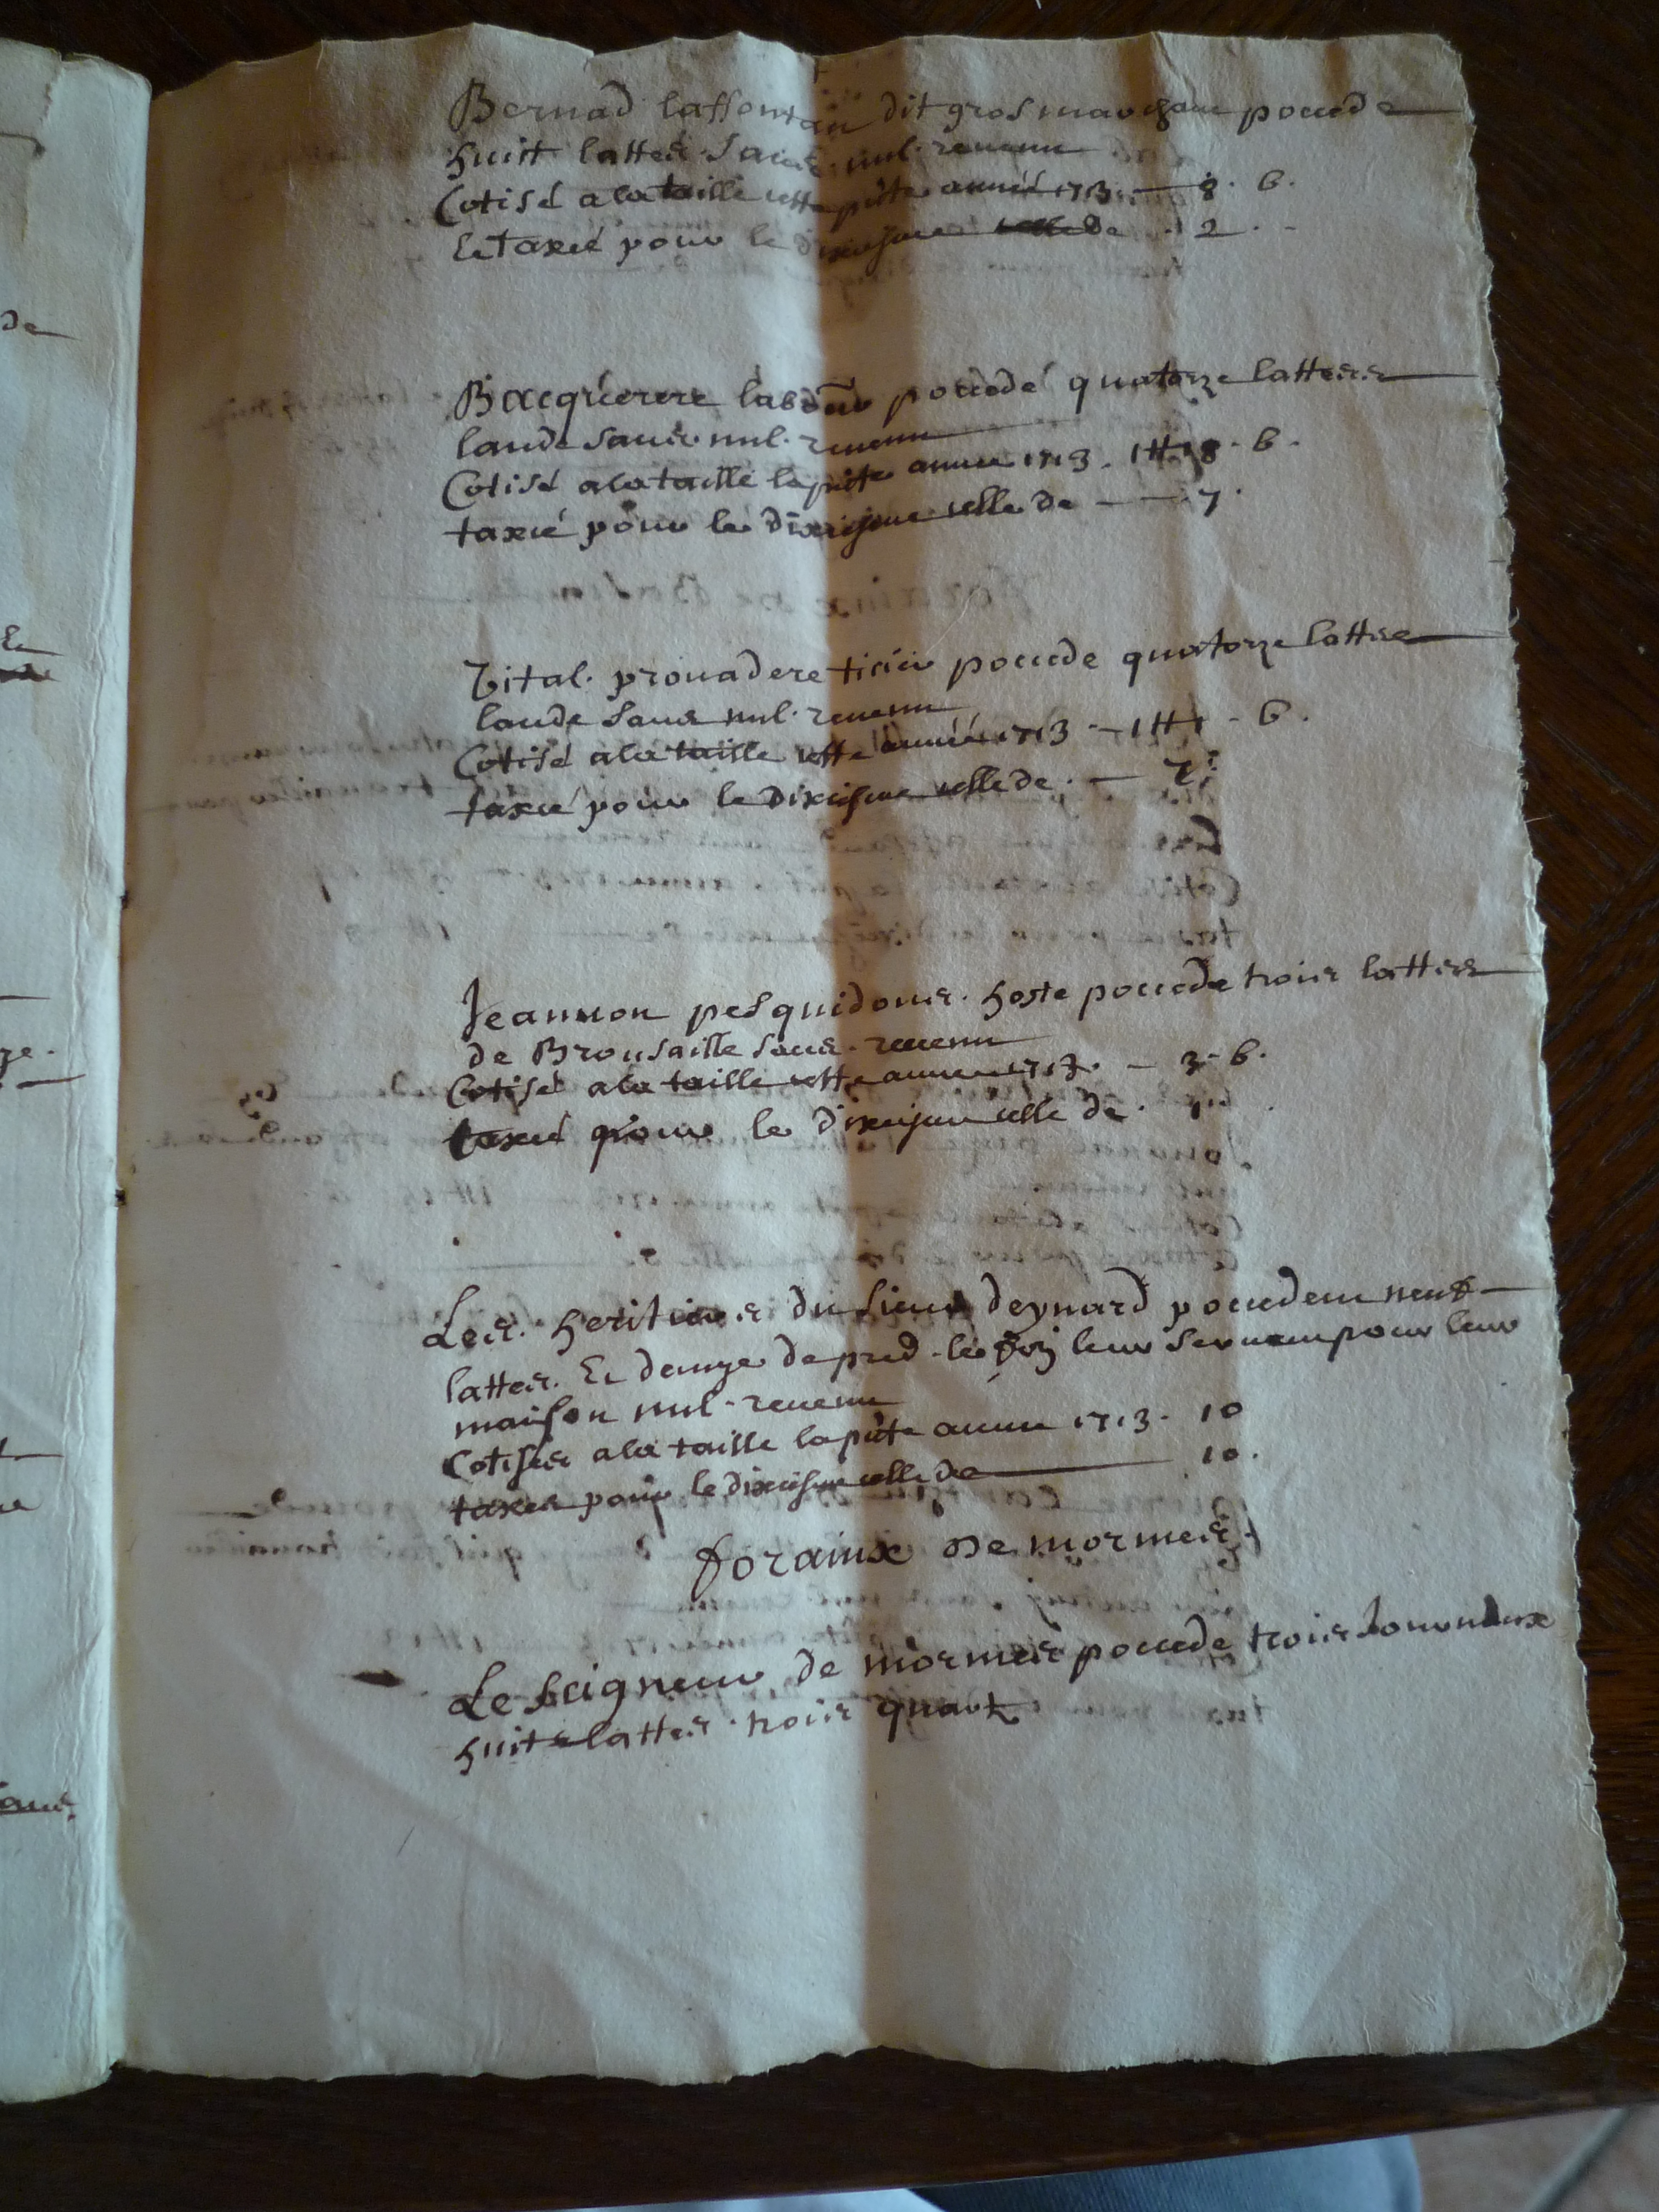 Bernad laffontan dit gros marchan poccede
huitt lattes sans nul revenu
Cotisé a la taille cette pñte année 1713 — 8 . 6 .
Et taxé pour le dixiesme celle de . 2 .
Bacquerere laboũr poccede quatorze lattes
lande sans nul revenu
Cotisé a la taille la pñte annee 1713 . 1tt 18 . 6 .
taxcé pour le dixiesme celle de — 7 .
Vital prouadere ticier poccede quatorze lattes
lande sans nul revenu
Cotisé a la taille cette année 1713 — 1tt 1 . 6 .
taxcé pour le Dixiesme celle de . —
Jeannon pesquidous hoste poccede trois lattes
de Brousaille sans revenu
Cotisé a la taille cette annee 1713 . — 3 . 6 .
taxcé pour le dixiesme celle de . 1 .
Les heritiers du sieur deynard poccedent neuf
lattes Et demye de pred le foin leur servant pour leur
maison nul revenu
Cotises a la taille la pñte annee 1713 . 10
taxes pour le dixiesme celle de 10 .
forains De mormes
Le seigneur de mormes poccede trois journaux
huit lattes trois quart
de
Et
ze .